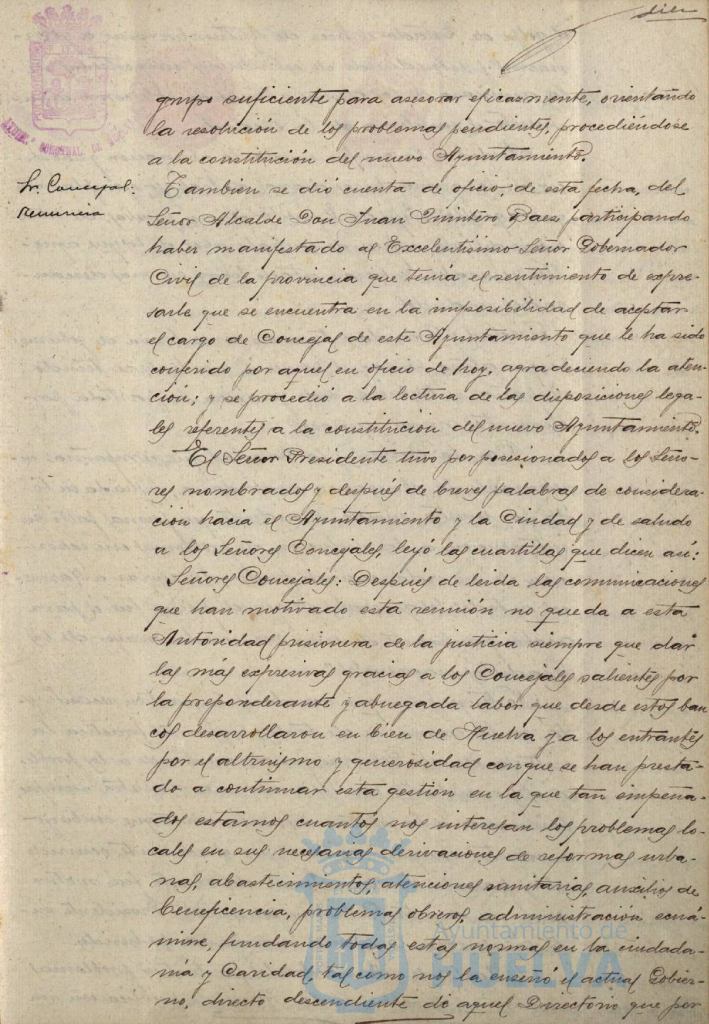 diez
grupo suficiente para asesorar eficazmente, orientando
la resolución de los problemas pendientes, procediéndose
a la constitución del nuevo Ayuntamiento.
Sr. Concejal:
Renuncia
Tambien se dió cuenta de oficio, de esta fecha, del
Señor Alcalde Don Juan Quintero Baez participando
haber manifestado al Excelentísimo Señor Gobernador
Civil de la provincia que tenia el sentimiento de expre-
sarle que se encuentra en la imposibilidad de aceptar
el cargo de Concejal de este Ayuntamiento que le ha sido
conferido por aquel en oficio de hoy, agradeciendo la aten-
ción; y se procedió a la lectura de las disposiciones lega-
les referentes a la constitución del nuevo Ayuntamiento.
El Señor Presidente tuvo por posesionados a los Seño-
res nombrados y después de breves palabras de considera-
ción hacia el Ayuntamiento y la Ciudad y de saludo
a los Señores Concejales, leyó las cuartillas que dicen así:
Señores Concejales: Después de leida las comunicaciones
que han motivado esta reunión no queda a esta
Autoridad prisionera de la justicia siempre que dar
las más expresivas gracias a los Concejales salientes por
la preponderante y abnegada labor que desde estos ban
cos desarrollaron en bien de Huelva y a los entrantes
por el altruismo y generosidad con que se han presta-
do a continuar esta gestión en la que tan empeña-
dos estamos cuantos nos interesan los problemas lo-
cales en sus necesarias derivaciones de reformas urba-
nas, abastecimientos, atenciones sanitarias, auxilios de
beneficencia, problemas obreros, administración ecuá-
nime, fundando todas estas normas en la ciudada-
nía y Caridad, tal como nos la enseñó el actual Gobier-
no, directo descendiente de aquel Directorio que por
Ayuntamiento de
HUELVA